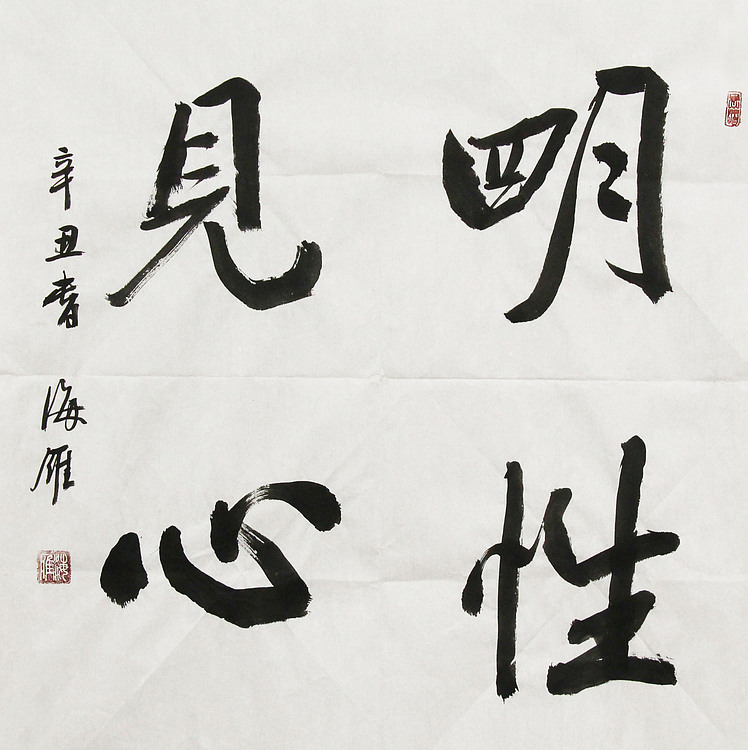 明性
見心
辛丑春 海雁